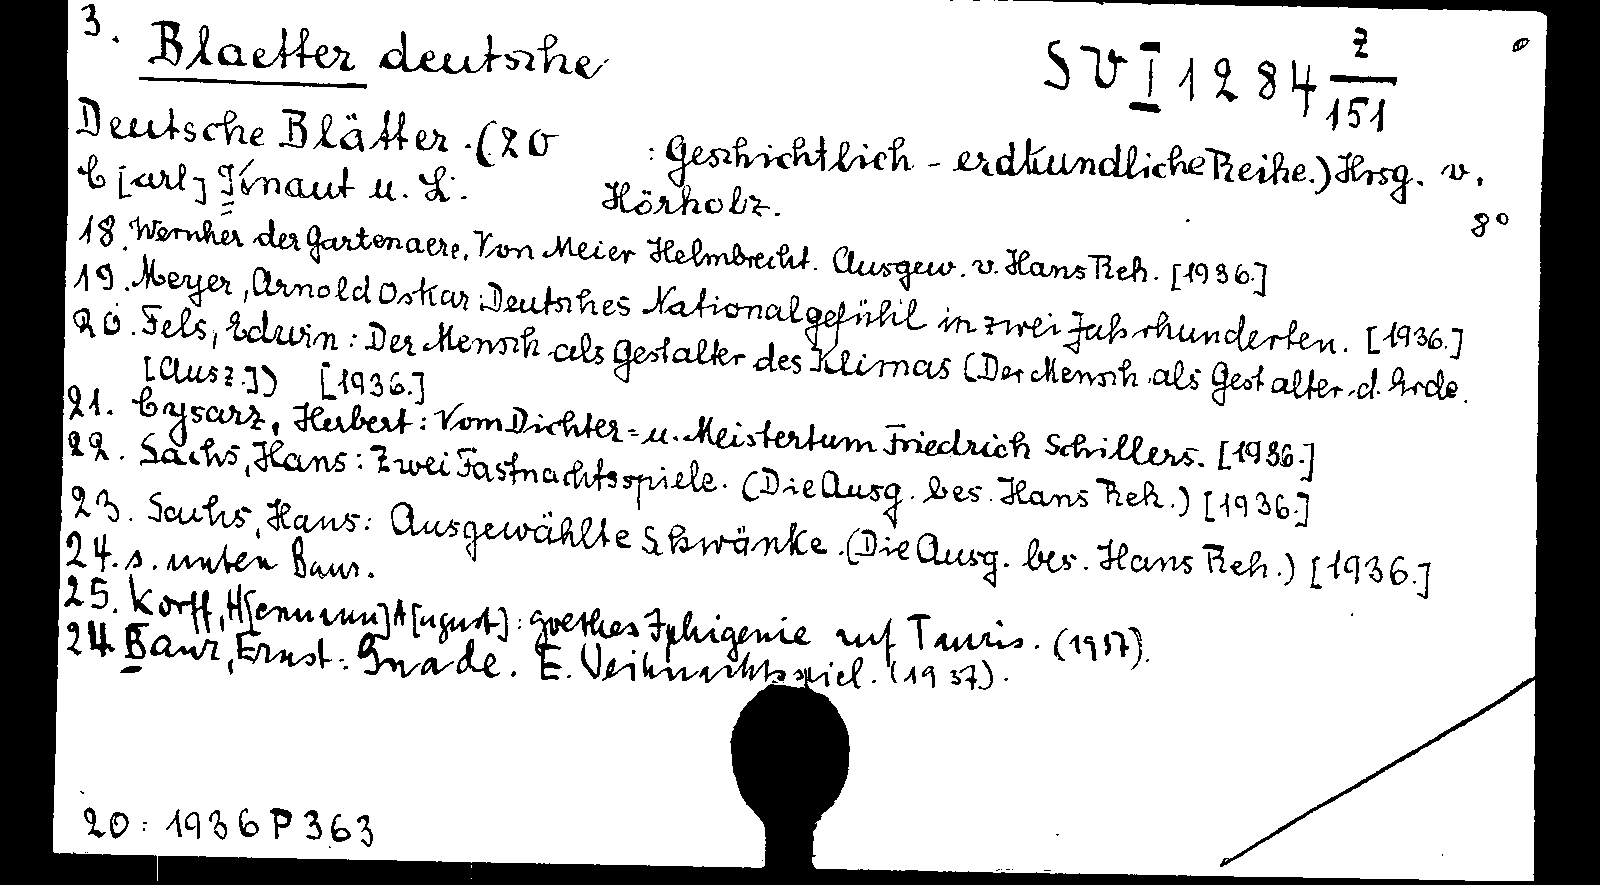 3.
Blaetter deutsche
S VI 1284 Z/151
Deutsche Blätter. (20 : Geschichtlich - erdkundliche Reihe.) Hrsg. v.
C[arl] Knaut u. L. Hörholz.
8°
18. Wernher der Gartenaere, Von Meier Helmbrecht. Ausgew. v. Hans Reh. [1936.]
19. Meyer, Arnold Oskar: Deutsches Nationalgefühl in zwei Jahrhunderten. [1936.]
20. Fels, Edwin: Der Mensch als Gestalter des Klimas (Der Mensch als Gestalter d. Erde.
[Ausz.]) [1936.]
21. Cysarz, Herbert: Vom Dichter= u. Meistertum Friedrich Schillers. [1936.]
22. Sachs, Hans: Zwei Fastnachtsspiele. (Die Ausg. bes. Hans Reh.) [1936.]
23. Sachs, Hans: Ausgewählte Schwänke. (Die Ausg. bes. Hans Reh.) [1936.]
24. s. unten Baur.
25. Korff, H[ermann] A[ugust]: Goethes Iphigenie auf Tauris. (1937).
24. Baur, Ernst: Gnade. E. Weihnachtsspiel. (1937).
20: 1936 P 363